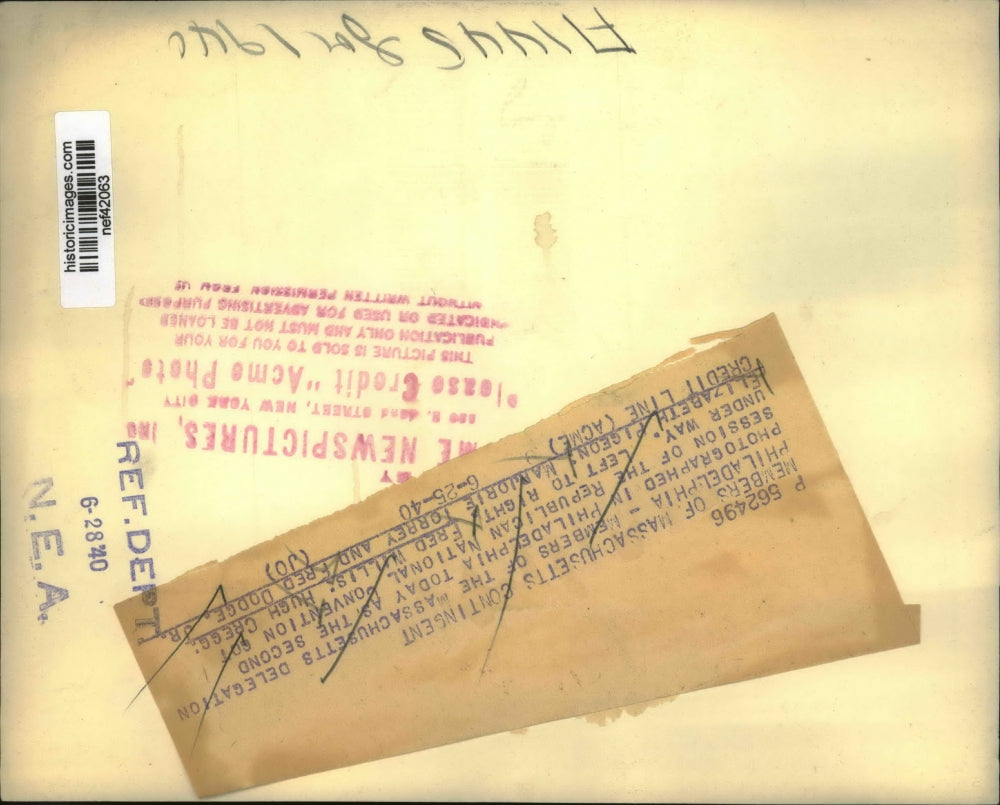 historicimages.com
nef42063
P 562496
MEMBERS OF MASSACHUSETTS CONTINGENT
PHILADELPHIA - MEMBERS OF THE MASSACHUSETTS DELEGATION
PHOTOGRAPHED IN PHILADELPHIA TODAY AS THE SECOND
SESSION OF THE REPUBLICAN NATIONAL CONVENTION GOT
UNDER WAY. LEFT TO RIGHT FRED WILLIS, HUGH GREGG,
ELIZABETH PIGEON, MARJORIE TORREY AND FRED DODGE, JR.
CREDIT LINE (ACME) 6-25-40 (JO)
BY
ME NEWSPICTURES, INC
E. 42nd STREET, NEW YORK CITY
lease Credit "Acme Photo"
THIS PICTURE IS SOLD TO YOU FOR YOUR
PUBLICATION ONLY AND MUST NOT BE LOANED
NDICATED OR USED FOR ADVERTISING PURPOSES
WITHOUT WRITTEN PERMISSION FROM US
REF.DEPT.
6-28 40
N.E.A.